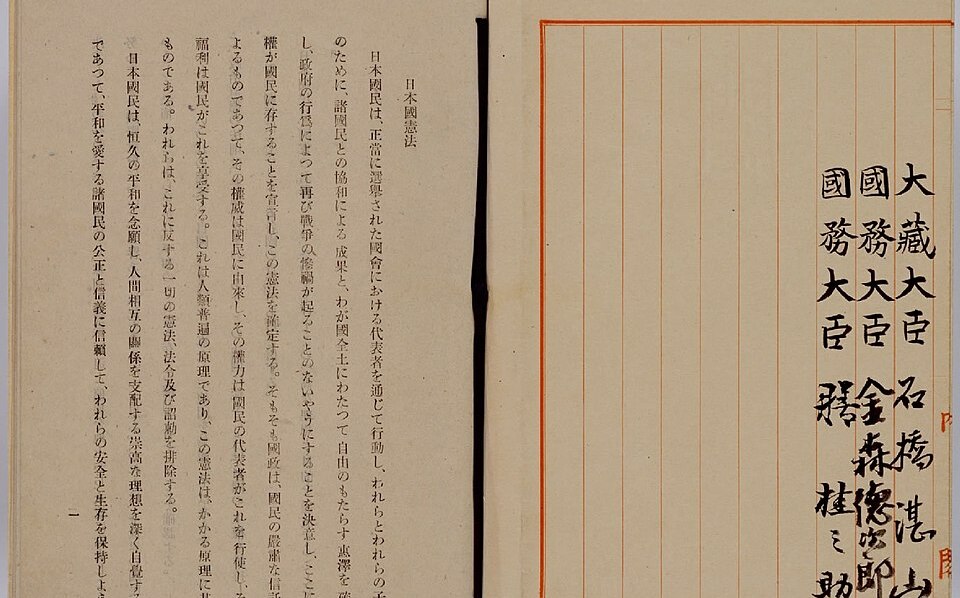 大藏大臣 石橋湛山
國務大臣 金森德次郎
國務大臣 膳桂之助
日本國憲法
日本國民は、正當に選擧された國會における代表者を通じて行動し、われらとわれらの子
のために、諸國民との協和による成果と、わが國全土にわたつて自由のもたらす惠澤を確
し、政府の行爲によつて再び戰爭の慘禍が起ることのないやうにすることを決意し、ここに
權が國民に存することを宣言し、この憲法を確定する。そもそも國政は、國民の嚴肅な信託
よるものであつて、その權威は國民に由來し、その權力は國民の代表者がこれを行使し、そ
福利は國民がこれを享受する。これは人類普遍の原理であり、この憲法は、かかる原理に基
ものである。われらは、これに反する一切の憲法、法令及び詔勅を排除する。
日本國民は、恒久の平和を念願し、人間相互の關係を支配する崇高な理想を深く自覺する
であつて、平和を愛する諸國民の公正と信義に信頼して、われらの安全と生存を保持しよう
一